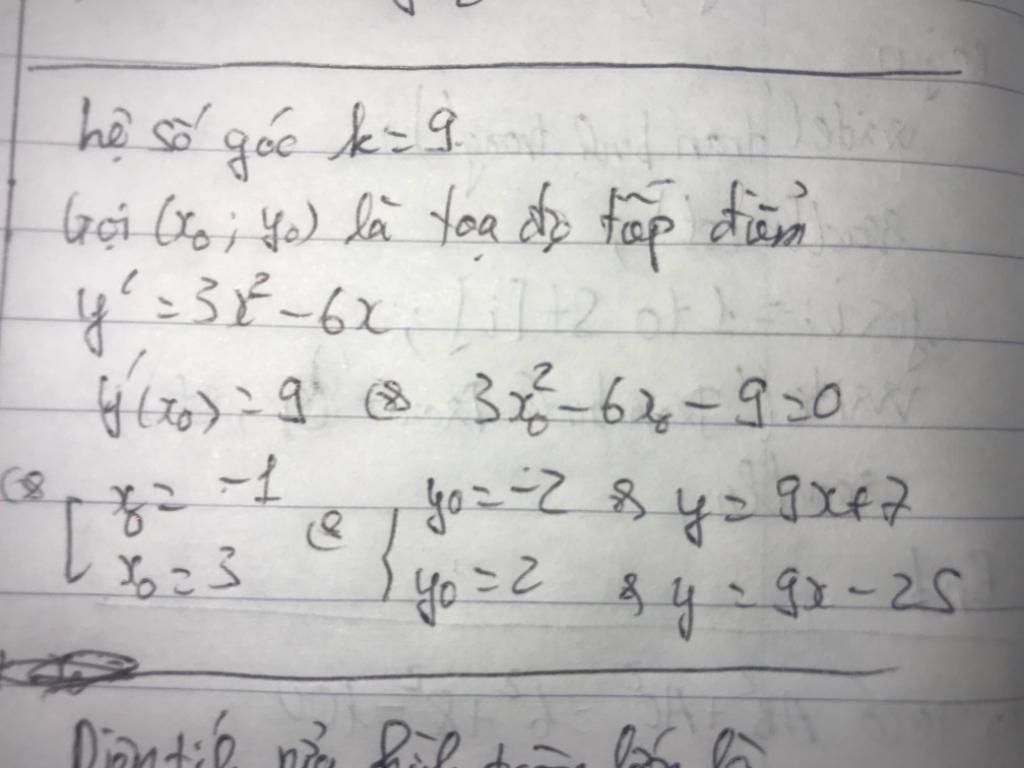 hệ số góc k = 9
Gọi (x₀; y₀) là tọa độ tiếp điểm
y' = 3x² - 6x
y'(x₀) = 9 ⇔ 3x₀² - 6x₀ - 9 = 0
⇔ [ x₀ = -1 ⇔ { y₀ = -2 ⇒ y = 9x + 7
x₀ = 3 y₀ = 2 ⇒ y = 9x - 25
Diện tích nửa hình